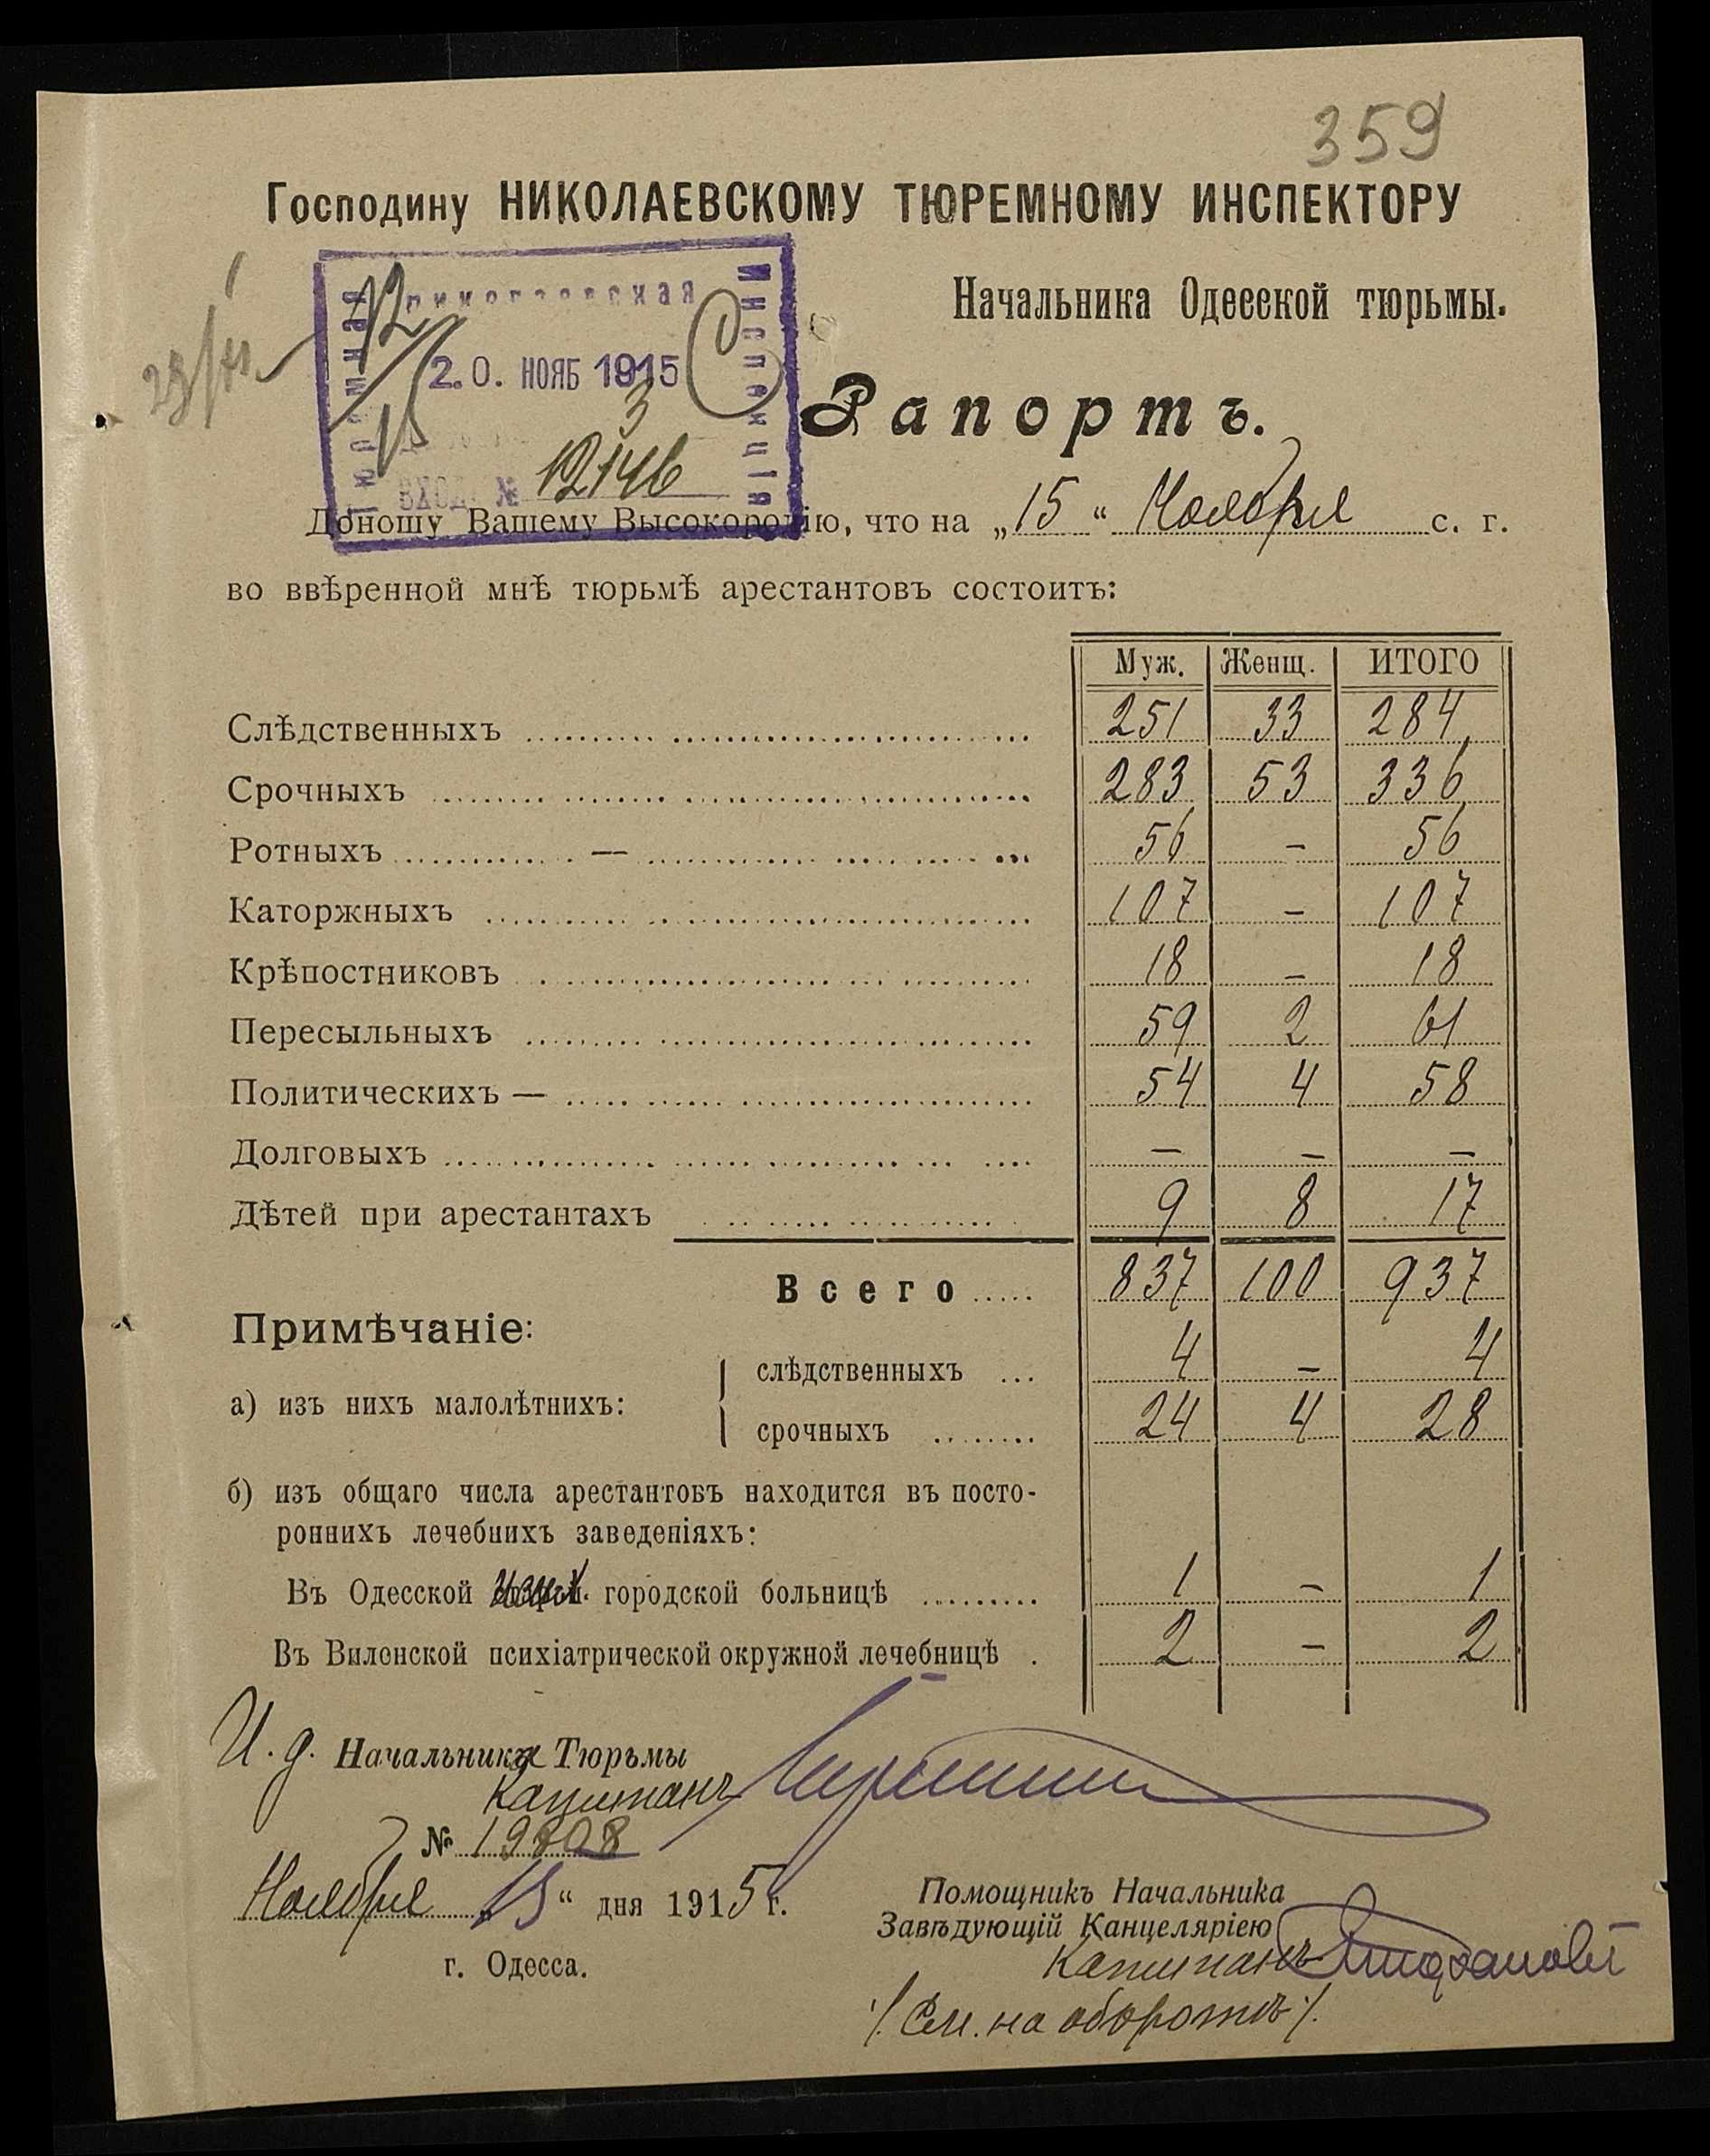 359
Господину НИКОЛАЕВСКОМУ ТЮРЕМНОМУ ИНСПЕКТОРУ
Начальника Одесской тюрьмы.
Николаевская
Тюремная
Инспекція
20. НОЯБ 1915
ВХОД. № 12146
Рапортъ.
Доношу Вашему Высокородію, что на „15“ Ноября с. г.
во ввѣренной мнѣ тюрьмѣ арестантовъ состоитъ:
Муж. Женщ. ИТОГО
Слѣдственныхъ 251 33 284
Срочныхъ 283 53 336
Ротныхъ — 56 - 56
Каторжныхъ 107 - 107
Крѣпостниковъ 18 - 18
Пересыльныхъ 59 2 61
Политическихъ — 54 4 58
Долговыхъ - - -
Дѣтей при арестантахъ 9 8 17
Всего 837 100 937
Примѣчаніе:
а) изъ нихъ малолѣтнихъ:
слѣдственныхъ 4 - 4
срочныхъ 24 4 28
б) изъ общаго числа арестантовъ находится въ посто-
роннихъ лечебнихъ заведеніяхъ:
Въ Одесской городской больницѣ 1 - 1
Въ Виленской психіатрической окружной лечебницѣ 2 - 2
И. д. Начальника Тюрьмы
Капитанъ
№ 19808
Ноября „15“ дня 1915 г.
г. Одесса.
Помощникъ Начальника
Завѣдующій Канцеляріею
Капитанъ
/. См. на оборотѣ /.